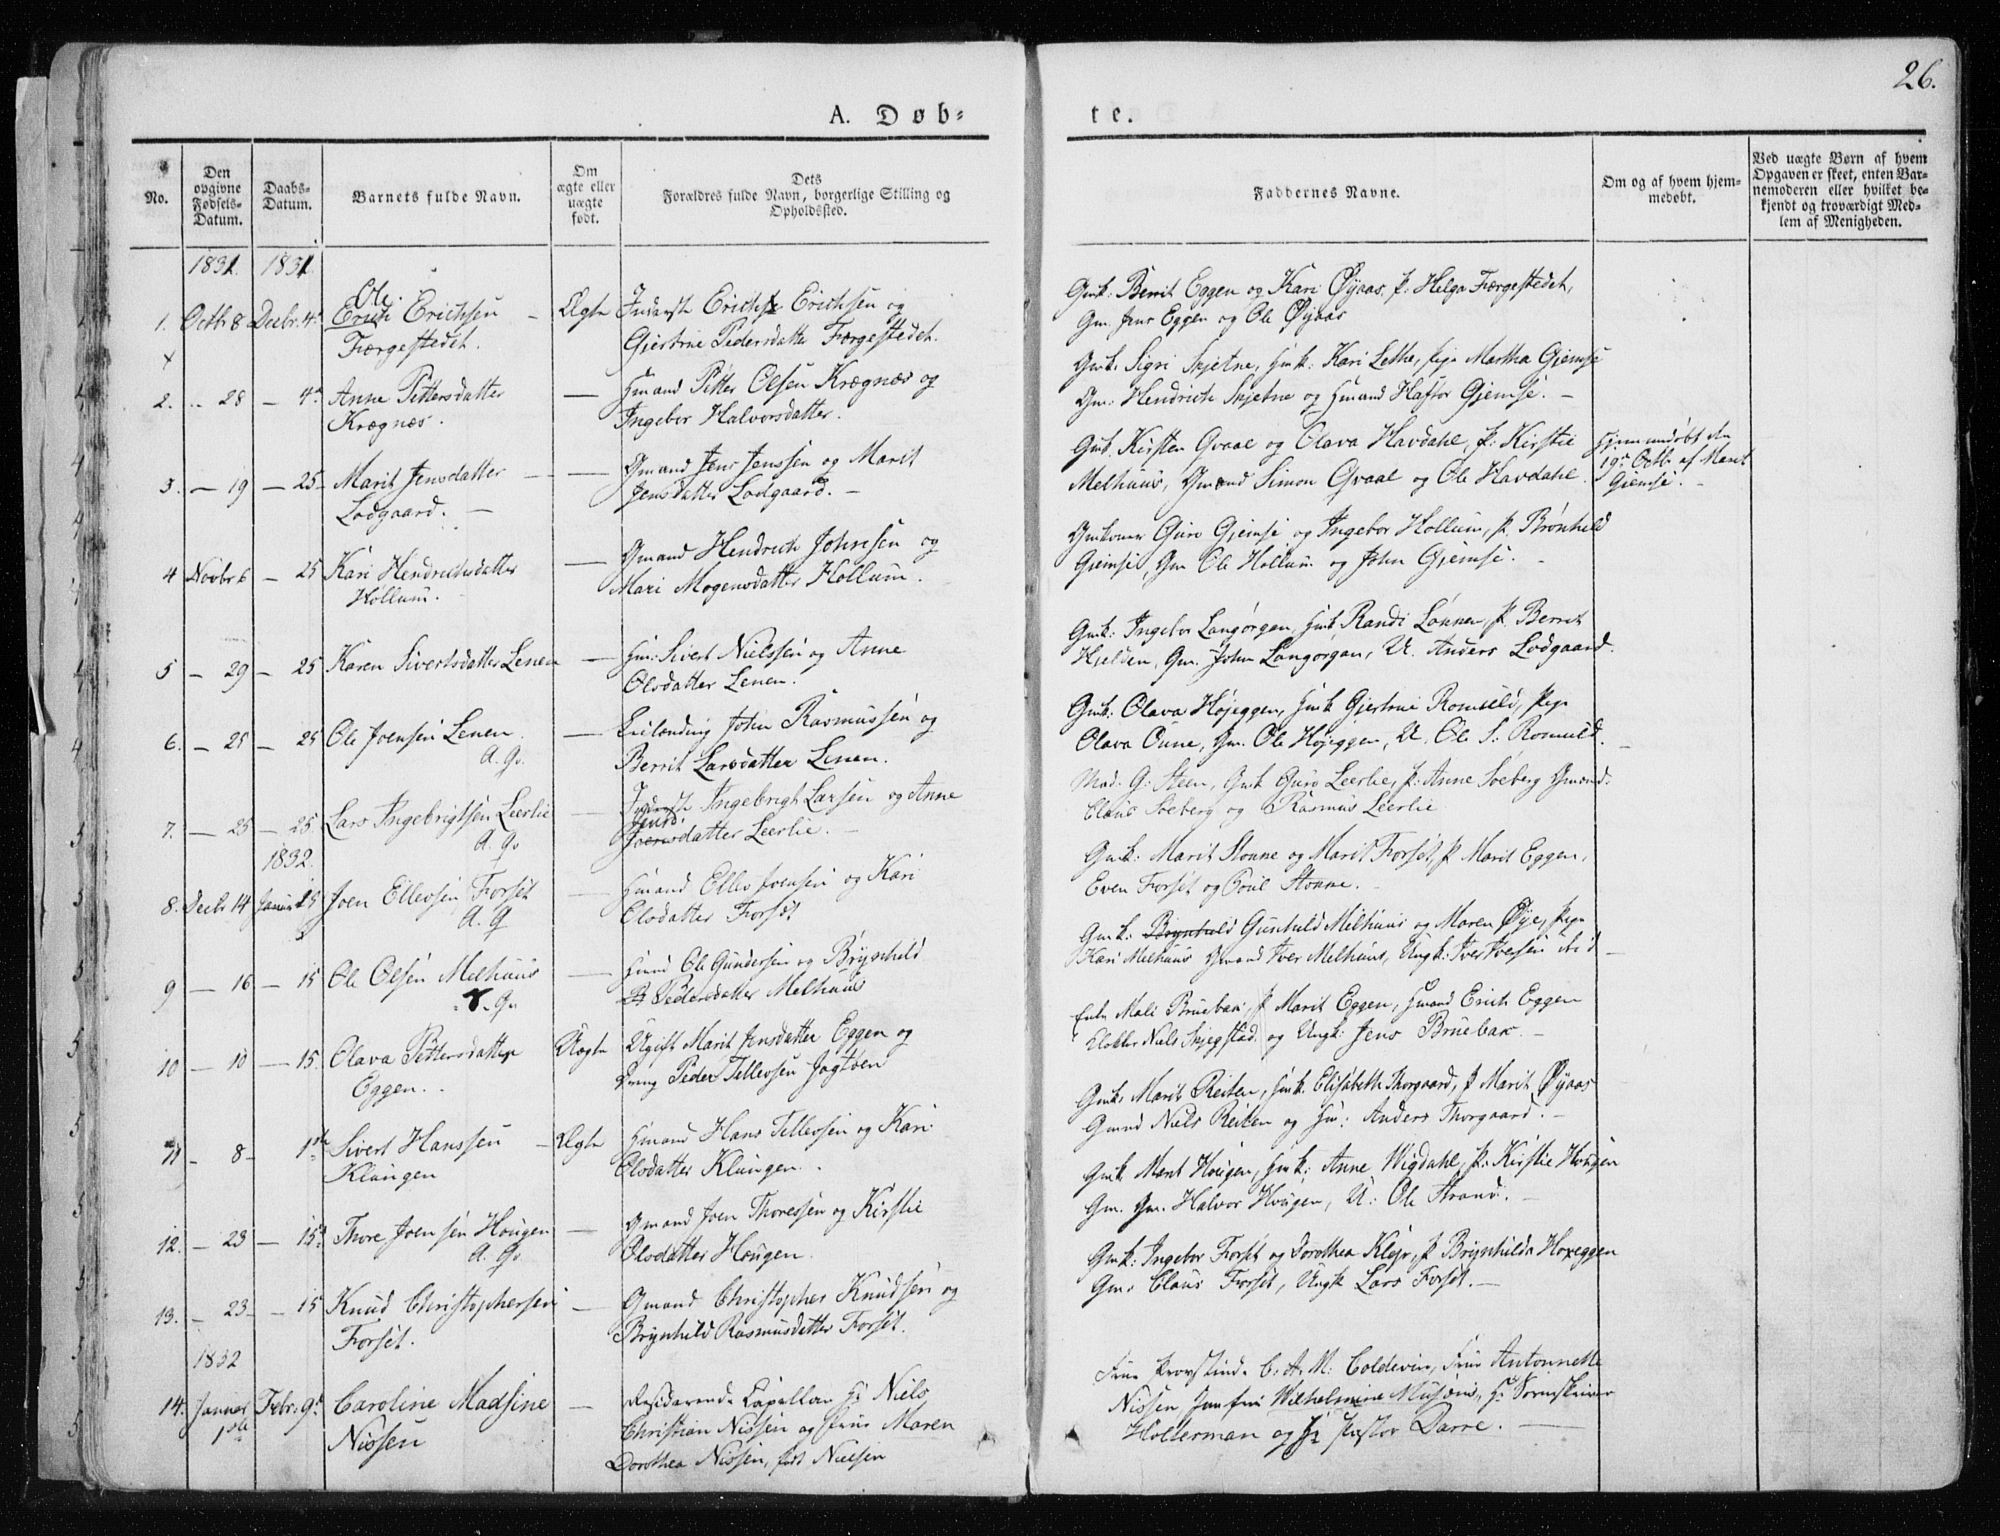 26.
A. Døb-
te.
No.
Den opgivne Fødsels-Datum.
Daabs-Datum.
Barnets fulde Navn.
Om ægte eller uægte født.
Dets Forældres fulde Navn, borgerlige Stilling og Opholdssted.
Faddernes Navne.
Om og af hvem hjem-medøbt.
Ved uægte Børn af hvem Opgaven er skeet, enten Bar-nemoderen eller hvilket be-kjendt og troværdigt Med-lem af Menigheden.
1831. 1831.
Ole
1. Octbr 8 Decbr. 4de Erich Erichsen Færgestedet.
Ægte
Erich Erichsen og
Gjertrue Pedersdatter Færgestedet.
Gmk: Berrit Eggen og Kari Øyaas, p: Helga Færgestedet,
Gm. Jens Eggen og Ole Øyaas
2. .. 28 — 4de Anne Pettersdatter
Krægnæs.
—
Hmand Petter Olsen Krægnæs og
Ingebor Halvorsdatter.
Gmk. Sigri Skjetne, Hmk: Kari Lethe, Pige Martha Gjemse
Gm: Hendrich Skjetne og Hmand Haftor Gjemse. —
3. — 19 — 25 Marit Jensdatter
Lodgaard. —
—
Gmand Jens Jenssen og Marit
Jensdatter Lodgaard. —
Gmk. Kirsten Gvaal og Olava Havdahl, p: Kirstie
Melhuus, Gmand Simon Gvaal og Ole Havdahl.
Hjemmedøbt den
19de Octbr af Marit
Gjemse.
4 Novbr 6 — 25 Kari Hendrichsdatter
Hollum.
—
Gmand Hendrich Johnsen og
Mari Mogensdatter Hollum.
Gmkoner Guro Gjemse og Ingebor Hollum, p. Brønhild
Gjemse, Gm Ole Hollum og John Gjemse.
5 — 29 — 25 Karen Sivertsdatter Lenen
—
Hm: Sivert Nielssen og Anne
Olsdatter Lenen.
Gmk: Ingebor Langørgen, Hmk Randi Lønnen, p. Berrit
Hjelden, Gm. John Langørgen, U. Anders Lodgaard.
6. — 25 — 25 Ole Joensen Lenen.
A. G.
—
John Rasmussen og
Berrit Larsdatter Lenen.
Gmk: Olava Højeggen, Hmk Gjertrue Romuld, Pige
Olava Oune, Gm. Ole Højeggen, U. Ole S. Romuld.
7. — 25 — 25 Lars Ingebrigtsen Leerlie
A. G.
—
Ingebrigt Larsen og Anne
Joensdatter Leerlie. —
Mad: G: Steen, Gmk Guro Leerlie, p: Anne Soeberg Gmand.
Claus Soeberg og Rasmus Leerlie
1832.
8. Decbr 14 Januar 15 Joen Ellevsen Forset
A. G
—
Hmand Ellev Joensen og Kari
Olsdatter Forset
Gmk: Marit Stonne og Marit Forset, p Marit Eggen,
Even Forset og Poul Stonne.
9 — 16 — 15 Ole Olsen Melhuus
—
Hmd Ole Gundersen og Brynhild
Pedersdatter Melhuus
Gmk: Brynhild Gunhild Melhuus og Maren Øye, Pige
Kari Melhuus Gmand Iver Melhuus, Ungk: Iver Iversen
10 — 10 — 15. Olava Pettersdatter
Eggen.
Uægte
Ugift Marit Jensdatter Eggen og
Peder Tellevsen Jagtøen
Enke Mali Bruebak, p Marit Eggen, Hmand Erich Eggen
Klokker Niels Skjegstad og Ungk: Jens Bruebak. —
11 — 8 — 1ste Sivert Hanssen
Klungen
Ægte
Hmand Hans Tellevsen og Kari
Olsdatter Klungen.
Gmk: Marit Reiten, Hmk. Elisabeth Thorgaard, p Marit Øyaas
Gmnd Niels Reiten og Hm: Anders Thorgaard. —
12. — 23 — 15de Thore Joensen Hougen
A. G.
—
Gmand Joen Thoressen og Kirstie
Olsdatter Hougen.
Gmk. Marit Hougen, Hmk: Anne Wigdahl, p: Kirstie Hougen
Gm. Gm. Halvor Hougen, U: Ole Strand. —
13. — 23 — 15 Knud Christophersen
Forset.
—
Gmand Christopher Knudsen og
Brynhild Rasmusdatter Forset.
Gmk: Ingebor Forset og Dorothea Klefr, p Brynhilda Hoxeggen
Gm: Claus Forset, Ungk Lars Forset. —
1832
14. Januar 1ste Febr: 9de Caroline Madsine
Nissen
—
Residerende Capellan Hr Niels
Christian Nissen og Frue Maren
Dorothea Nissen, født Nielsen
Frue Provstinde C. A. M. Coldevin, Frue Antonnette
Nissen Jomfrue Wilhelmine Musæus, Hr Sorenskriver
Holterman og Hr Pastor Darre. —